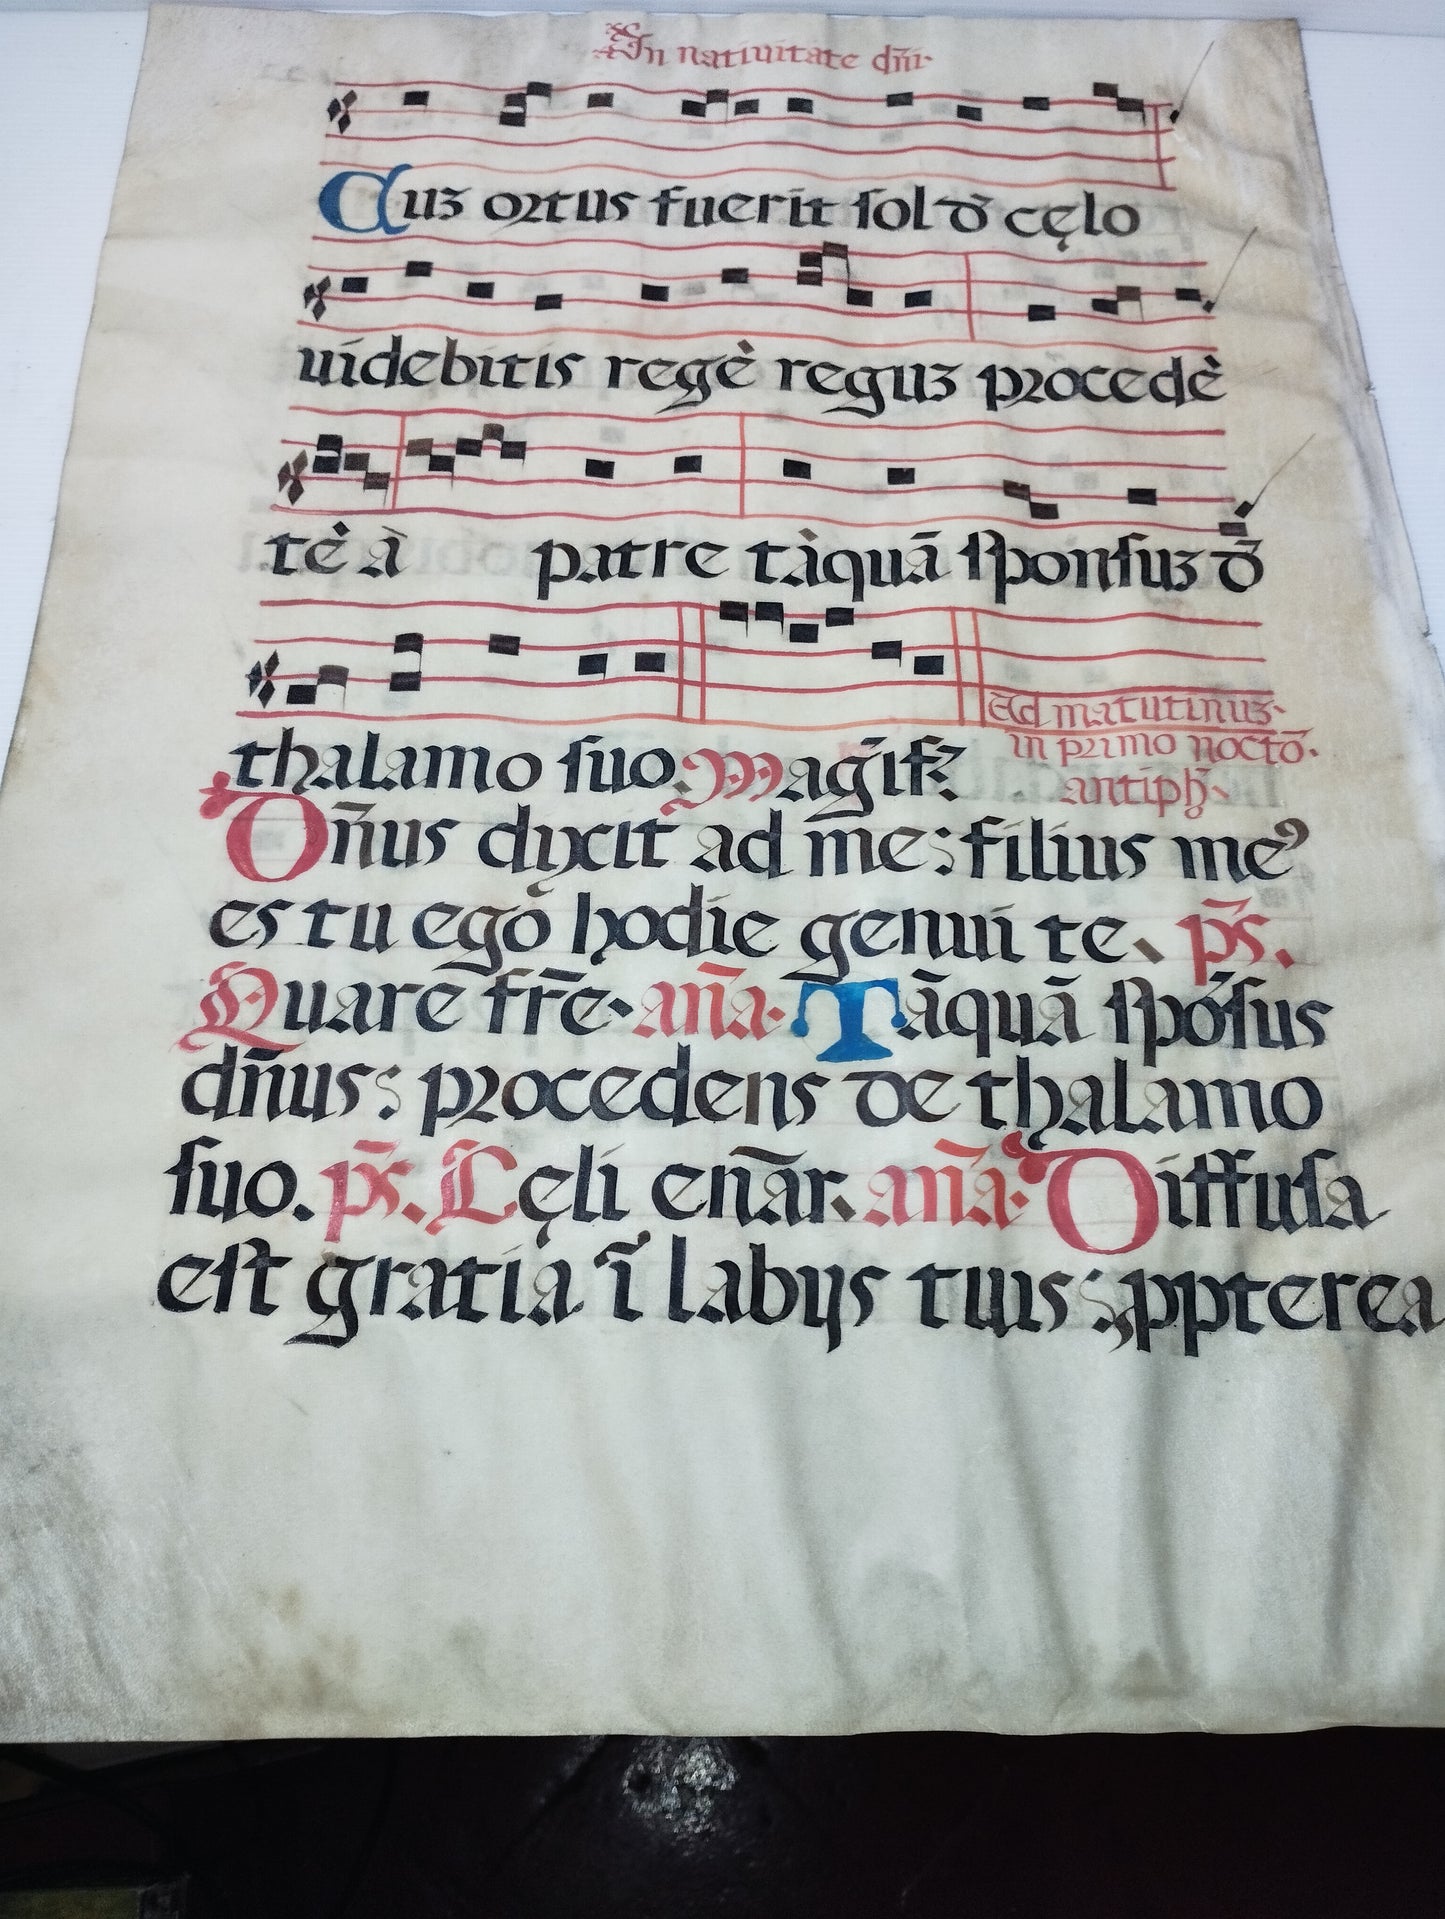 In natiuitate dn̄i·
Cuꝫ ortus fuerit sol đ cęlo
uidebitis regē reguꝫ procedē
tē à patre tāquā sponsuꝫ đ
thalamo suo. Magīfꝫ
Ad matutinuꝫ·
in primo noctō·
antiph̄·
Dn̄us dixit ad me: filius me⁹
es tu ego hodie genui te. ps̄.
Quare fr̄e· an̄a· Tāquā spōsus
dn̄us: procedens de thalamo
suo. ps̄. Cęli en̄ar. an̄a· Diffusa
est gratia ī labijs tuis: ꝓpterea